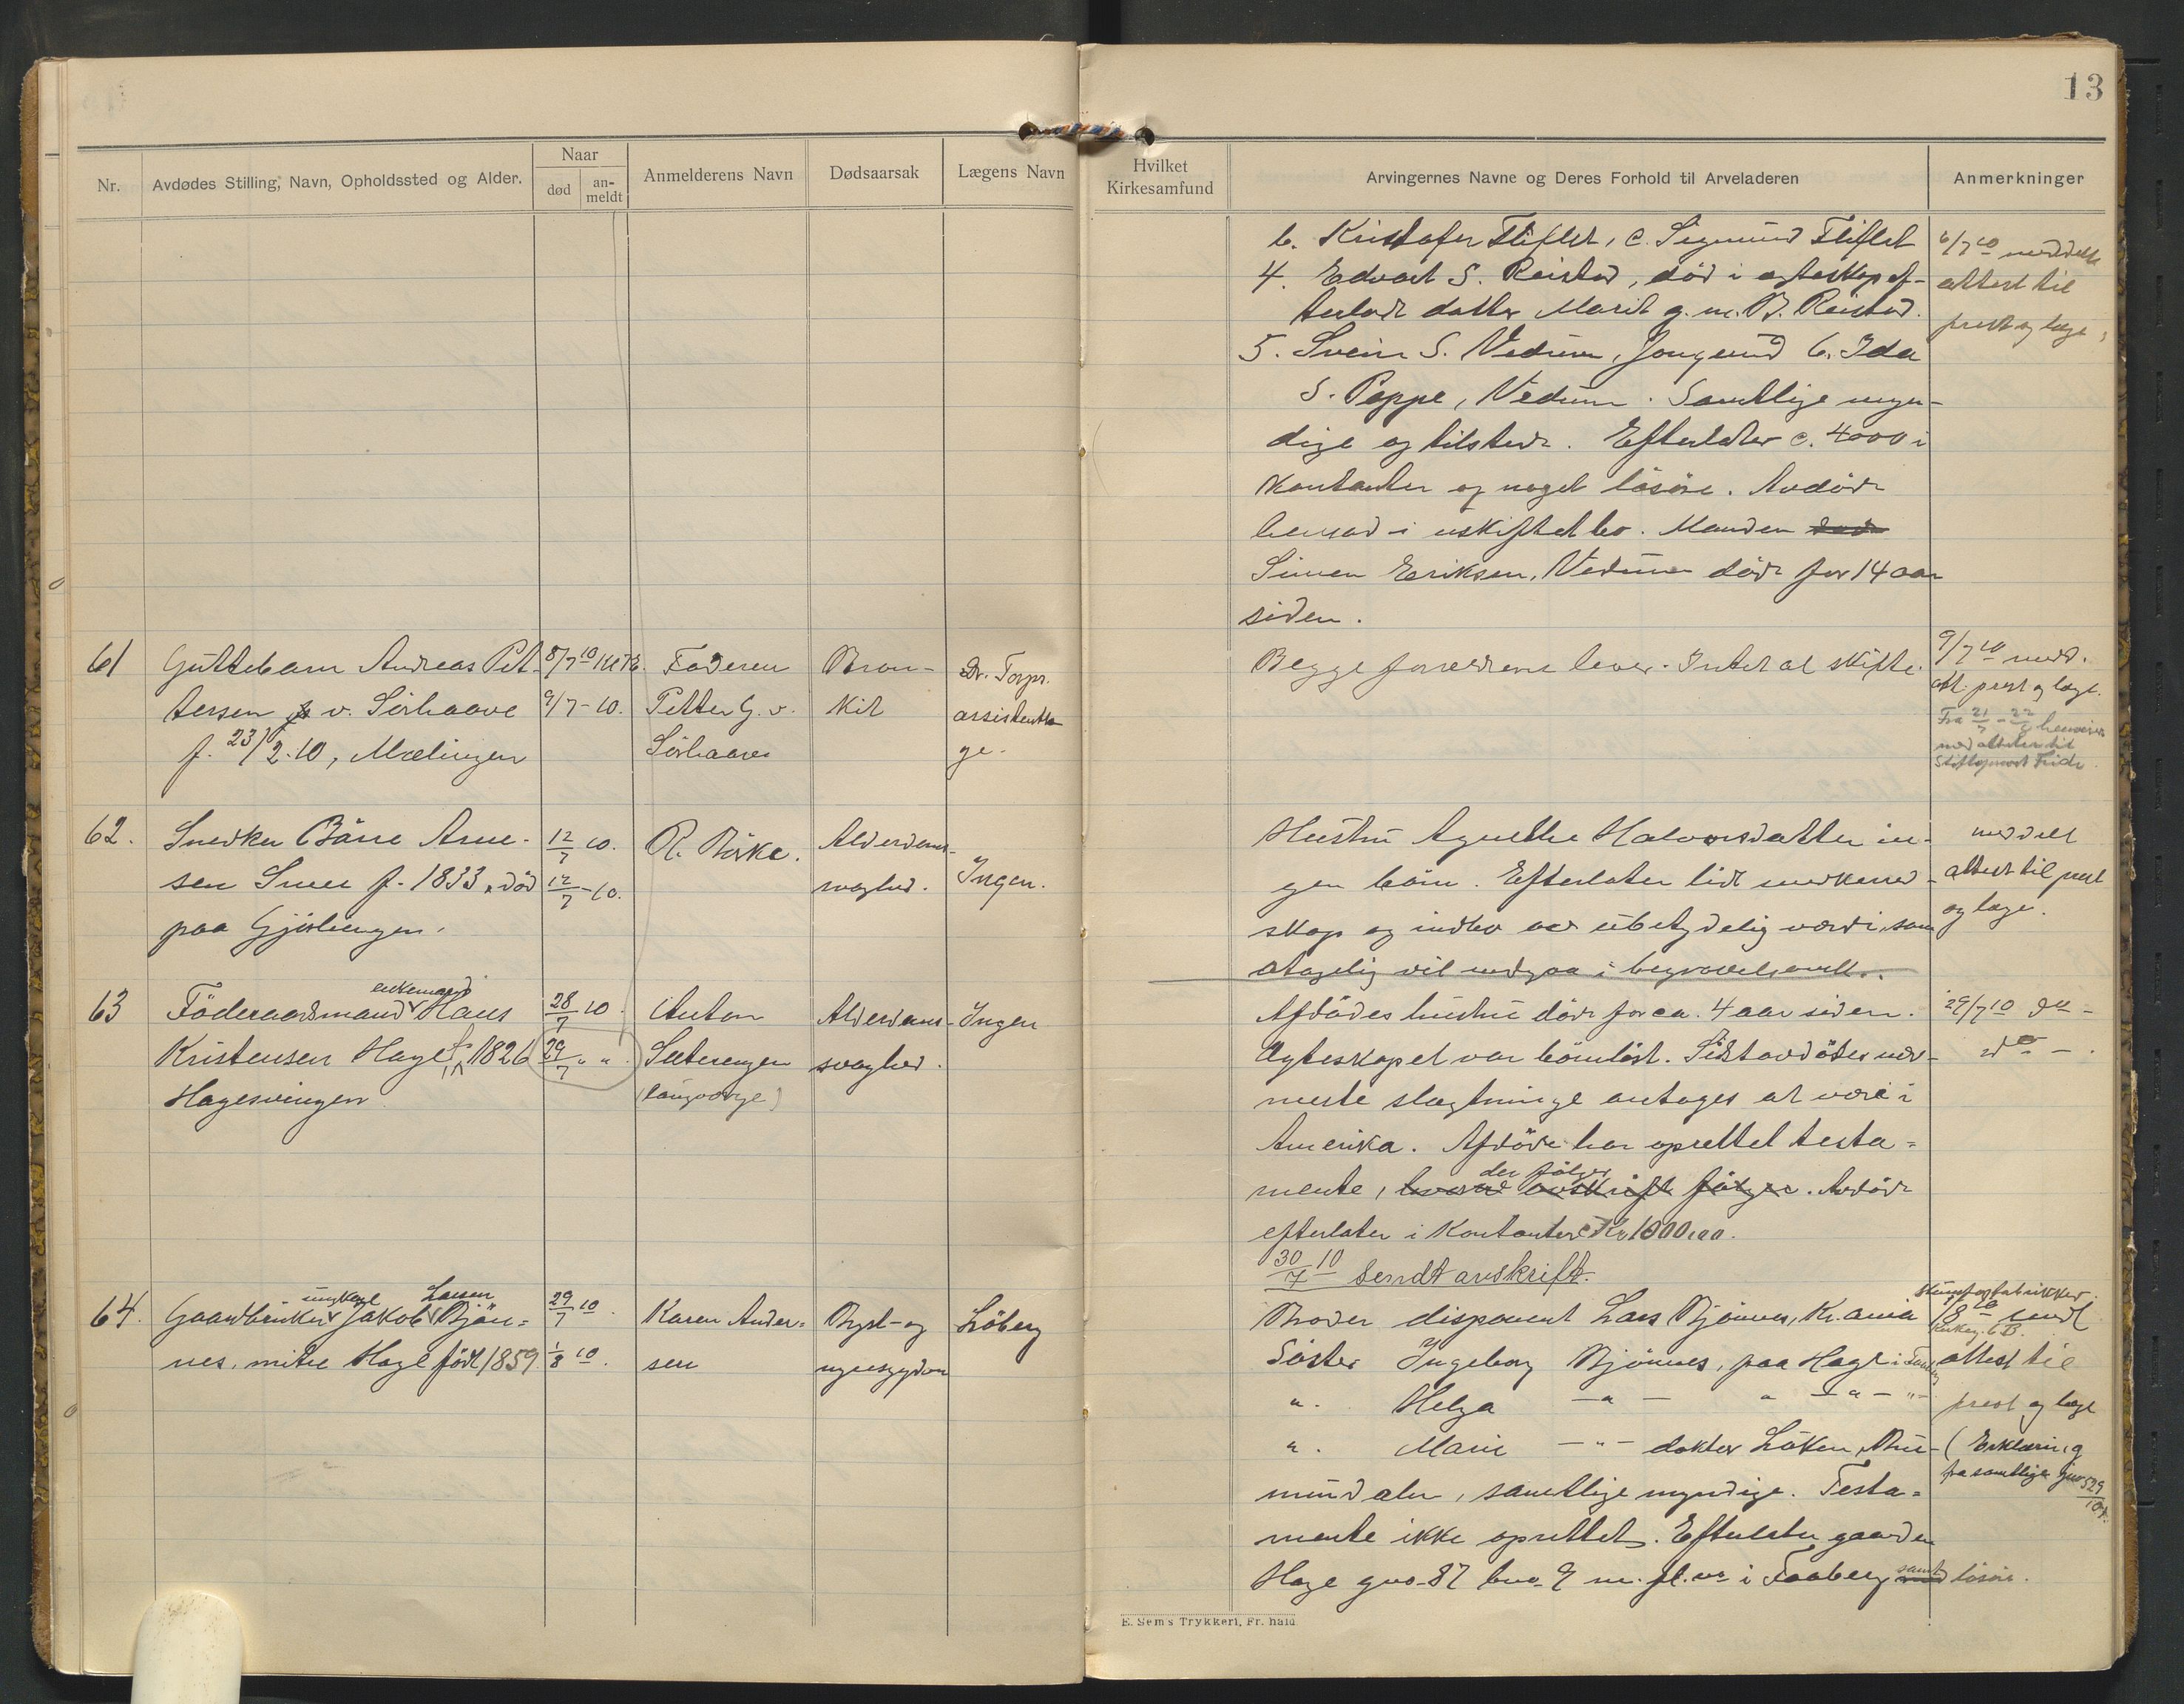 13
Nr.
Avdødes Stilling, Navn, Opholdssted og Alder.
Naar
død
an-
meldt
Anmelderens Navn
Dødsaarsak
Lægens Navn
Hvilket
Kirkesamfund
Arvingernes Navne og Deres Forhold til Arveladeren
Anmerkninger
b. Kristofer Fliflet, c. Sigmund Fliflet
4. Edvart S. Reistad, död i egteskap ef-
terladt datter Marit g. m. B. Reistad.
5. Svein S. Vedum, Jongund 6. Ida
S. Poppe, Vedum. Samtlige myn-
dige og tilstede. Efterlater c. 4000 i
kontanter og noget lösöre. Avdöde
hensad i uskiftet bo. Manden
Simen Eriksen, Vedum döde for 14 aar
siden.
6/7 10 meddelt
attest til
prest og læge
61
Guttebarn Andreas Pet-
tersen v. Sörhaave
f. 23/2-10, Mælingen
8/7 10
9/7-10.
Faderen
Petter G. v.
Sörhaave
Bron-
kit
Dr. Torpr.
assistentlæ
ge.
Begge forældrene lever. Intet at skifte.
9/7 10 medd.
att. prest og læge.
62.
Snedker Börre Arne-
sen Smee f. 1833, död
paa Gjörliengen.
12/7 10.
12/7-10.
R. Börke.
Alderdoms-
svaghed.
Ingen.
Hustru Agnethe Halvorsdatter in-
gen börn. Efterlater lidt snekkerred-
skap og indbo av ubetydelig værdi, som
antagelig vil medgaa i begravelsesomk.
meddelt
attest til prest
og læge.
63
enkemand
Föderaadsmand Hans
Kristensen Hage f. 1826
Hagesvingen
28/7 10.
29/7 " "
Anton
Sæterengen
(langvarge)
Alderdoms-
svaghed.
Ingen
Afdödes hustru döde for ca. 4 aar siden.
Ægteskapet var börnlöst. Sidstavdödes nær-
meste slægtninge antages at være i
Amerika. Afdöde har oprettet testa=
der fölger
mente, hvorav avskrift fölger. Avdöde
efterlater i kontanter c Kr 1000,00.
30/7 10 sendt avskrift.
29/7 10 do -
do - .
64.
ungkarl Larsen
Gaardbruker Jakob Bjön=
nes, mitre Hage födt 1859.
29/7 10.
1/8 10.
Karen Ander=
sen
Bryst- og
nyresygdom
Löberg
Broder disponent Lars Bjönnes, Kr.ania
Söster Ingeborg Bjönnes, paa Hage i Faaberg
". Helga -"- " -"- "-
". Marie -"- doktor Löken, Bru-
munddalen, samtlige myndige. Testa=
mente ikke oprettet. Efterlater gaarden
Hage gno. 87 bno. 9 m. fl. no i Faaberg samt lösöre.
1/8 10 medt
attest til
prest og læge
(Erklæring
fra samtlige jnr 529/10.
E. Sem's Trykkeri, Fr. hald